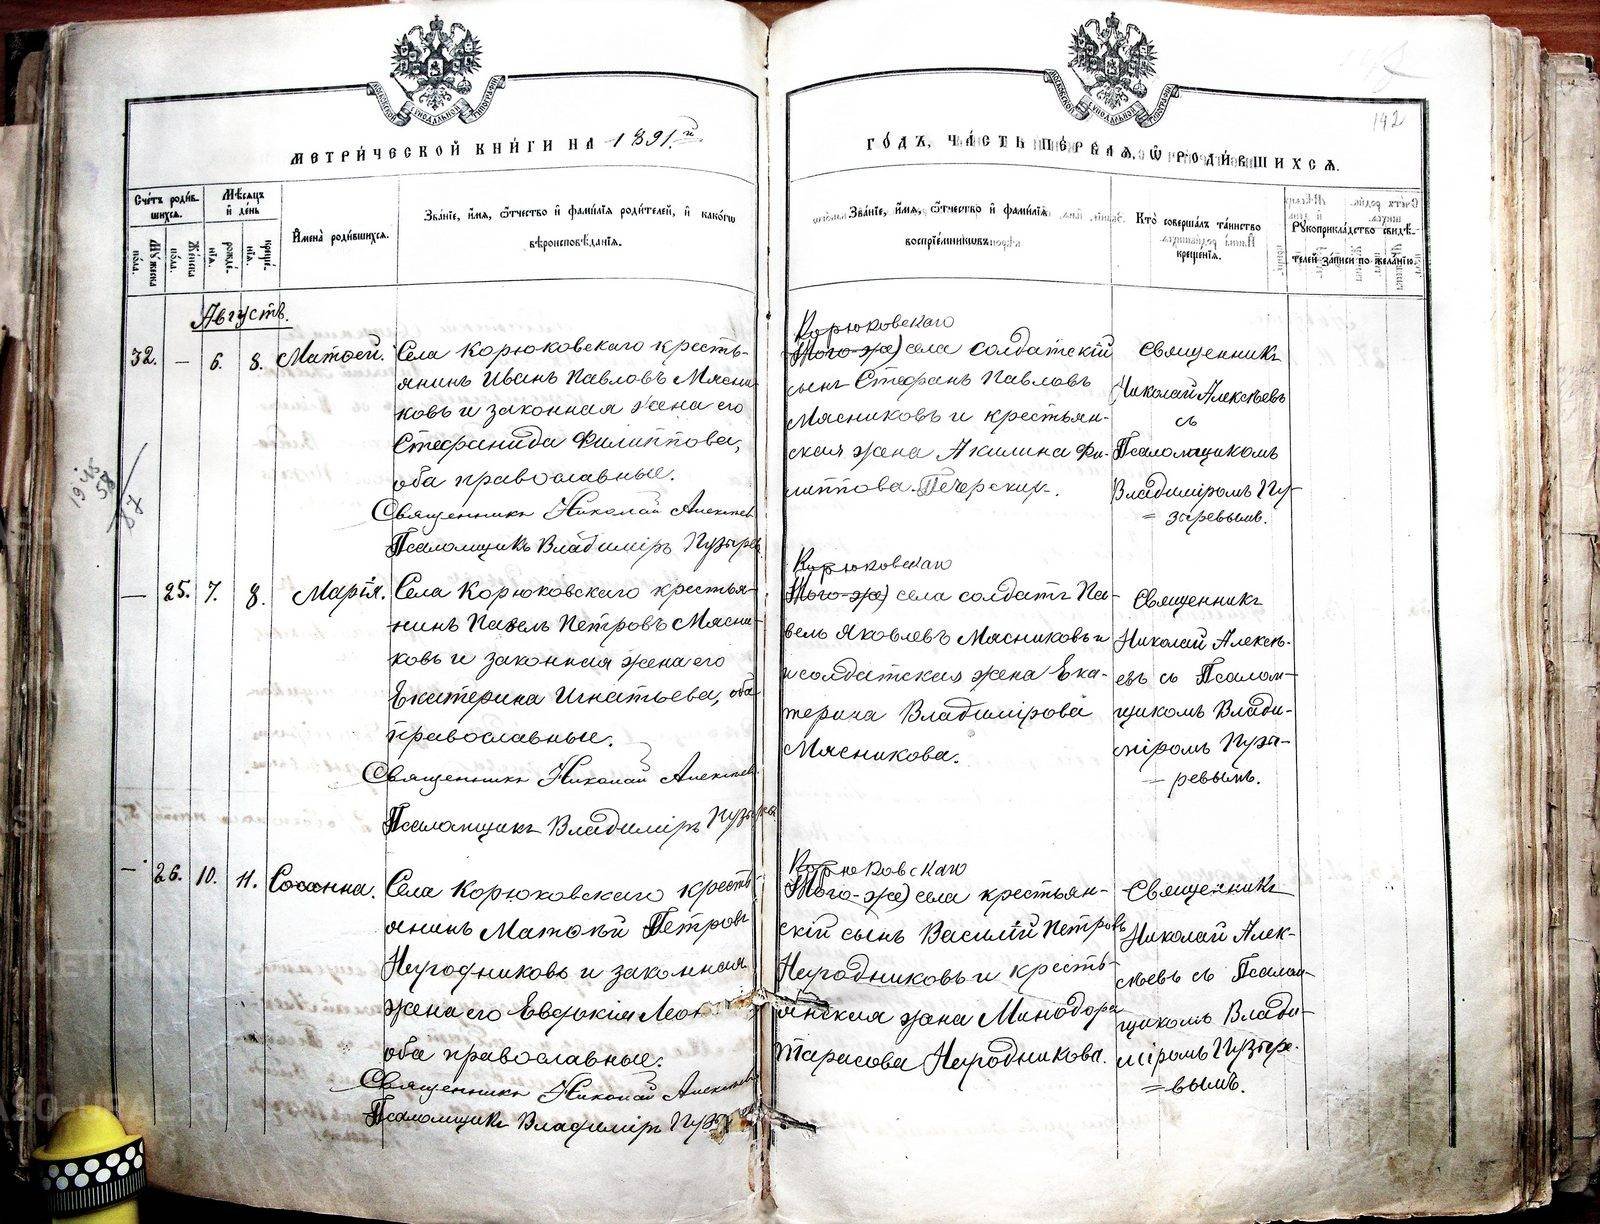 МОСКОВСКОЙ СѴНОДАЛЬНОЙ ТѴПОГРАФІИ
МОСКОВСКОЙ СѴНОДАЛЬНОЙ ТѴПОГРАФІИ
142
МЕТРИ́ЧЕСКОЙ КНИ́ГИ НА 1891.й
ГО́ДЪ, ЧА́СТЬ ПЕ́РВАЯ, Ѿ РОДИ́ВШИХСЯ.
Сче́тъ роди́в-
шихся.
Му́жеска по́ла.
Же́нска по́ла.
Мѣ́сяцъ
и де́нь
рожде́-
нія.
креще́-
нія.
Имена̀ роди́вшихся.
Зва́ніе, и́мя, ѻ́тчество и фами́лія роди́телей, и како́гѡ
вѣроисповѣ́данія.
Зва́ніе, и́мя, ѻ́тчество и фами́лія
воспріе́мникѡвъ.
Кто̀ соверша́лъ та́инство
креще́нія.
Рꙋкоприкла́дство свидѣ́-
телей за́писи по жела́нію.
Августъ.
32. — 6. 8. Матѳей.
Села Корюковскаго кресть-
янинъ Иванъ Павловъ Мясни-
ковъ и законная жена его
Стефанида Филиппова,
оба православные.
Священникъ Николай Алексѣев
Псаломщикъ Владиміръ Пузырев
Корюковскаго
(Того-же) села солдатскій
сынъ Стефанъ Павловъ
Мясниковъ и крестьян-
ская жена Акилина Фи-
липпова
Священникъ
Николай Алексѣевъ
съ
Псаломщикомъ
Владиміромъ Пу-
=зыревымъ.
1945
58
87
— 25. 7. 8. Марія.
Села Корюковскаго крестья-
нинъ Павелъ Петровъ Мясни-
ковъ и законная жена его
Екатерина Игнатьева, оба
православные.
Священникъ Николай Алексѣев
Псаломщикъ Владиміръ Пузырев
Корюковскаго
(Того-же) села солдатъ Па-
велъ Яковлевъ Мясниковъ и
и солдатская жена Ека-
терина Владимірова
Мясникова.
Священникъ
Николай Алексѣ-
евъ съ Псалом-
щикомъ Влади-
міромъ Пузы-
—ревымъ.
— 26. 10. 11. Сосанна.
Села Корюковскаго кресть-
янинъ Матѳѣй Петровъ
Негодниковъ и законная
жена его Евдокія Леон
оба православные.
Священникъ Николай Алексѣев
Псаломщикъ Владиміръ Пузы
Корюковскаго
(Того-же) села крестьян-
скій сынъ Василій Петровъ
Негодниковъ и кресть-
янская жена Минодора
Тарасова Негодникова.
Священникъ
Николай Алек-
сѣевъ съ Псалом-
щикомъ Влади-
міромъ Пузыре-
=вымъ.